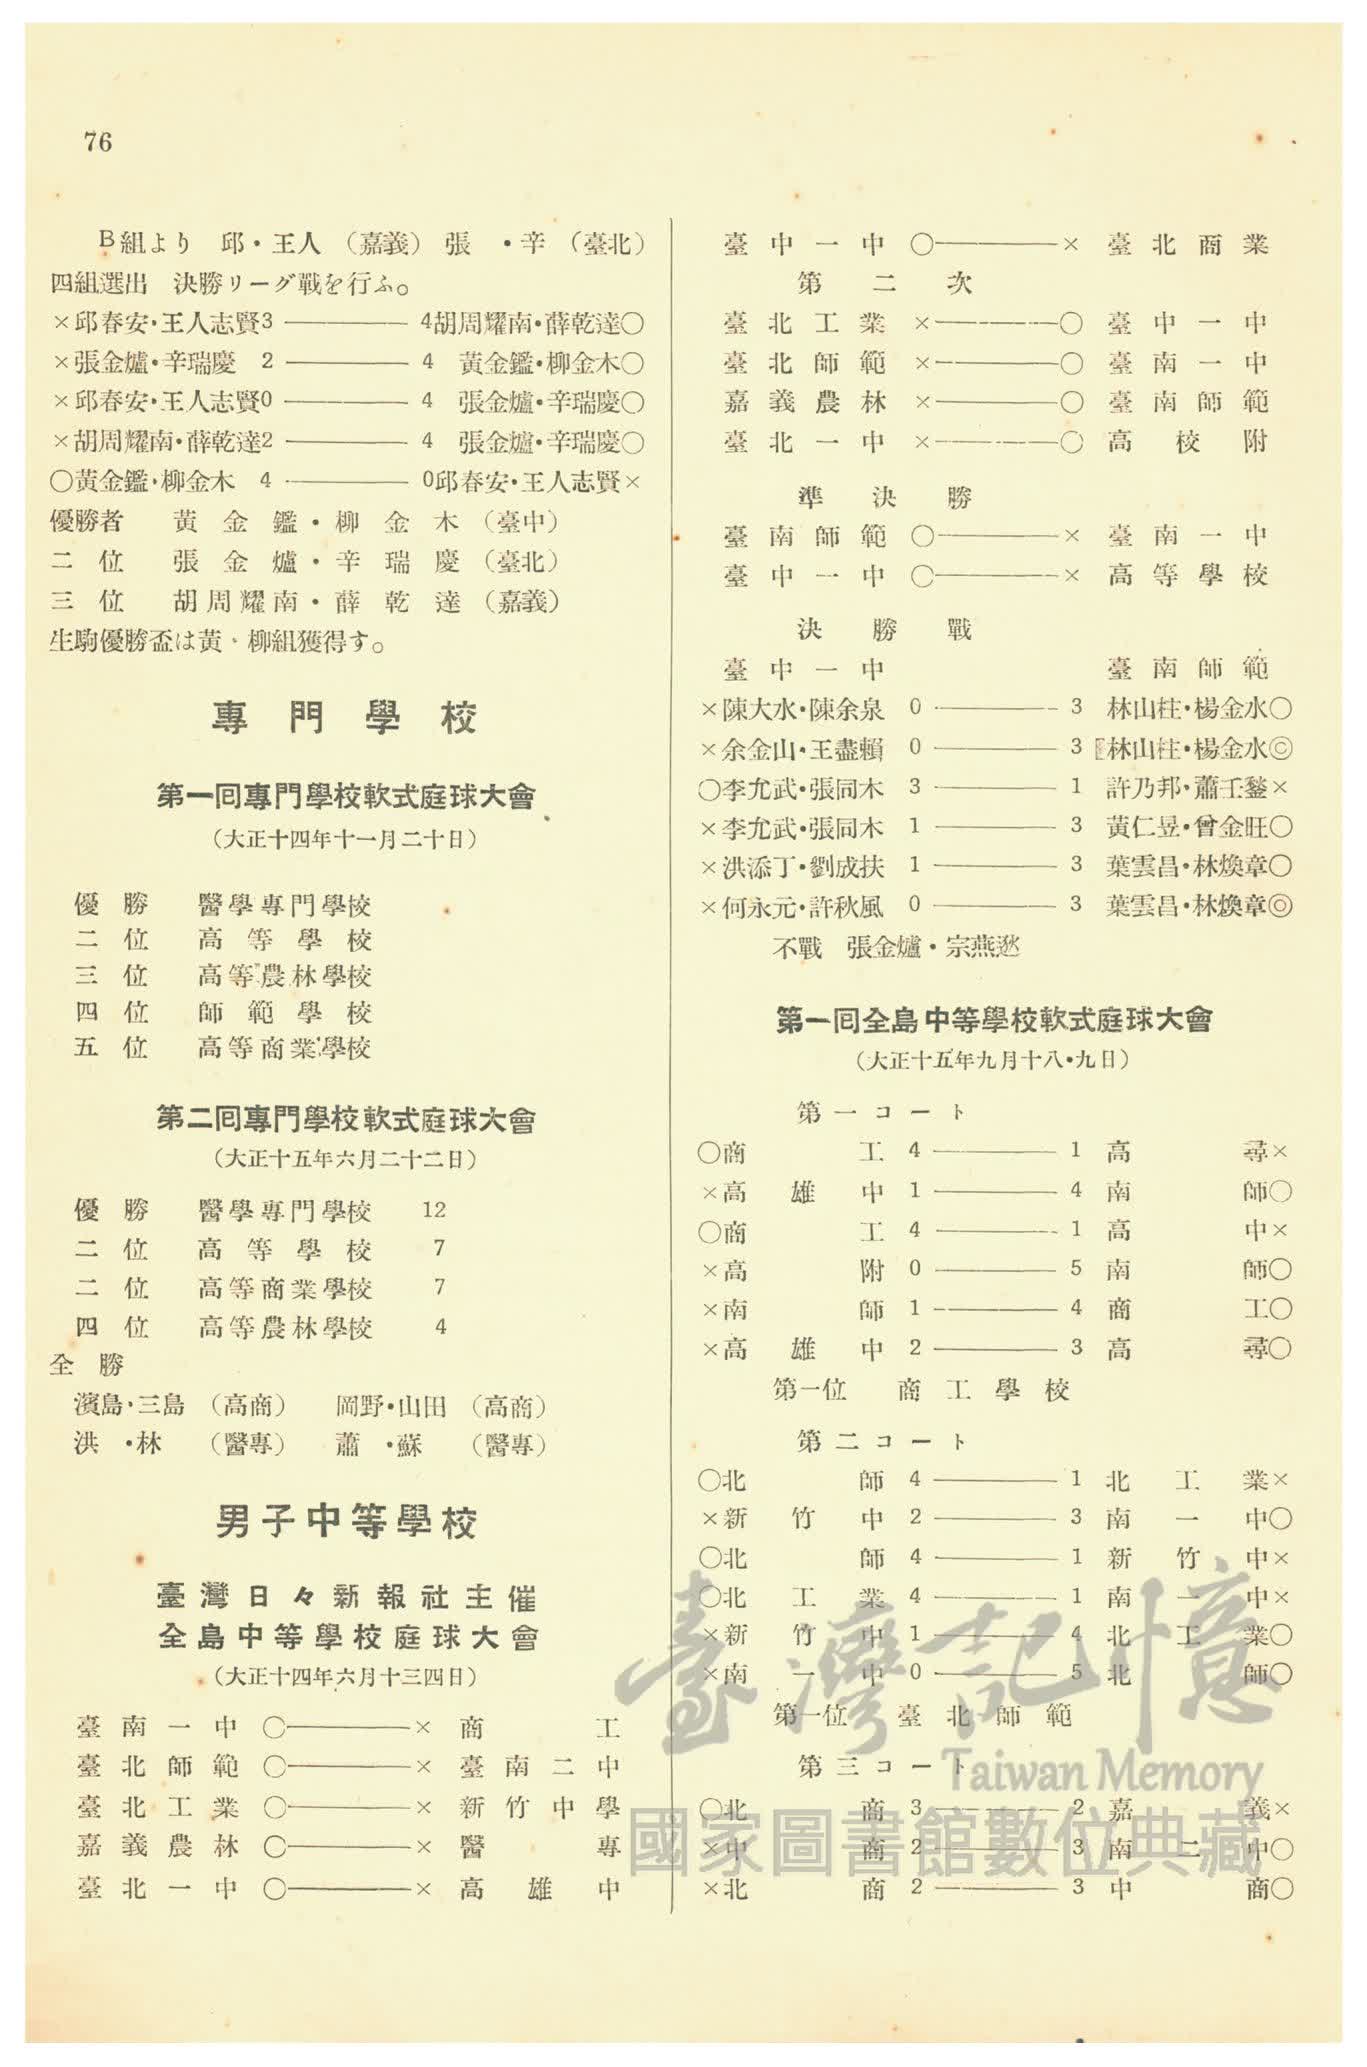 76
B組より 邱・王人（嘉義）張 ・辛（臺北）
四組選出 決勝リーグ戰を行ふ。
×邱春安・王人志賢3 ——— 4胡周耀南・薛乾達○
×張金爐・辛瑞慶 2 ——— 4 黃金鑑・柳金木○
×邱春安・王人志賢0 ——— 4 張金爐・辛瑞慶○
×胡周耀南・薛乾達2 ——— 4 張金爐・辛瑞慶○
○黃金鑑・柳金木 4 ——— 0邱春安・王人志賢×
優勝者 黃金鑑・柳金木（臺中）
二位 張金爐・辛瑞慶（臺北）
三位 胡周耀南・薛乾達（嘉義）
生駒優勝盃は黃、柳組獲得す。
專門學校
第一回專門學校軟式庭球大會
（大正十四年十一月二十日）
優勝 醫學專門學校
二位 高等學校
三位 高等農林學校
四位 師範學校
五位 高等商業學校
第二回專門學校軟式庭球大會
（大正十五年六月二十二日）
優勝 醫學專門學校 12
二位 高等學校 7
二位 高等商業學校 7
四位 高等農林學校 4
全勝
濱島・三島（高商） 岡野・山田（高商）
洪・林（醫專） 蕭・蘇（醫專）
男子中等學校
臺灣日々新報社主催
全島中等學校庭球大會
（大正十四年六月十三四日）
臺南一中 ○———× 商工
臺北師範 ○———× 臺南二中
臺北工業 ○———× 新竹中學
嘉義農林 ○———× 醫專
臺北一中 ○———× 高雄中
臺中一中 ○———× 臺北商業
第二次
臺北工業 ×———○ 臺中一中
臺北師範 ×———○ 臺南一中
嘉義農林 ×———○ 臺南師範
臺北一中 ×———○ 高校附
準決勝
臺南師範 ○———× 臺南一中
臺中一中 ○———× 高等學校
決勝戰
臺中一中 臺南師範
×陳大水・陳余泉 0 ——— 3 林山柱・楊金水○
×余金山・王盡賴 0 ——— 3 林山柱・楊金水◎
○李允武・張同木 3 ——— 1 許乃邦・蕭壬鍫×
×李允武・張同木 1 ——— 3 黃仁昱・曾金旺○
×洪添丁・劉成扶 1 ——— 3 葉雲昌・林煥章○
×何永元・許秋風 0 ——— 3 葉雲昌・林煥章◎
不戰 張金爐・宗燕
第一回全島中等學校軟式庭球大會
（大正十五年九月十八・九日）
第一コート
○商工 4 ——— 1 高尋×
×高雄中 1 ——— 4 南師○
○商工 4 ——— 1 高中×
×高附 0 ——— 5 南師○
×南師 1 ——— 4 商工○
×高雄中 2 ——— 3 高尋○
第一位 商工學校
第二コート
○北師 4 ——— 1 北工業×
×新竹中 2 ——— 3 南一中○
○北師 4 ——— 1 新竹中×
○北工業 4 ——— 1 南一中×
×新竹中 1 ——— 4 北工業○
×南一中 0 ——— 5 北師○
第一位 臺北師範
第三コート
○北商 3 ——— 2 嘉義×
×中商 2 ——— 3 南二中○
×北商 2 ——— 3 中商○
臺灣記憶
Taiwan Memory
國家圖書館數位典藏